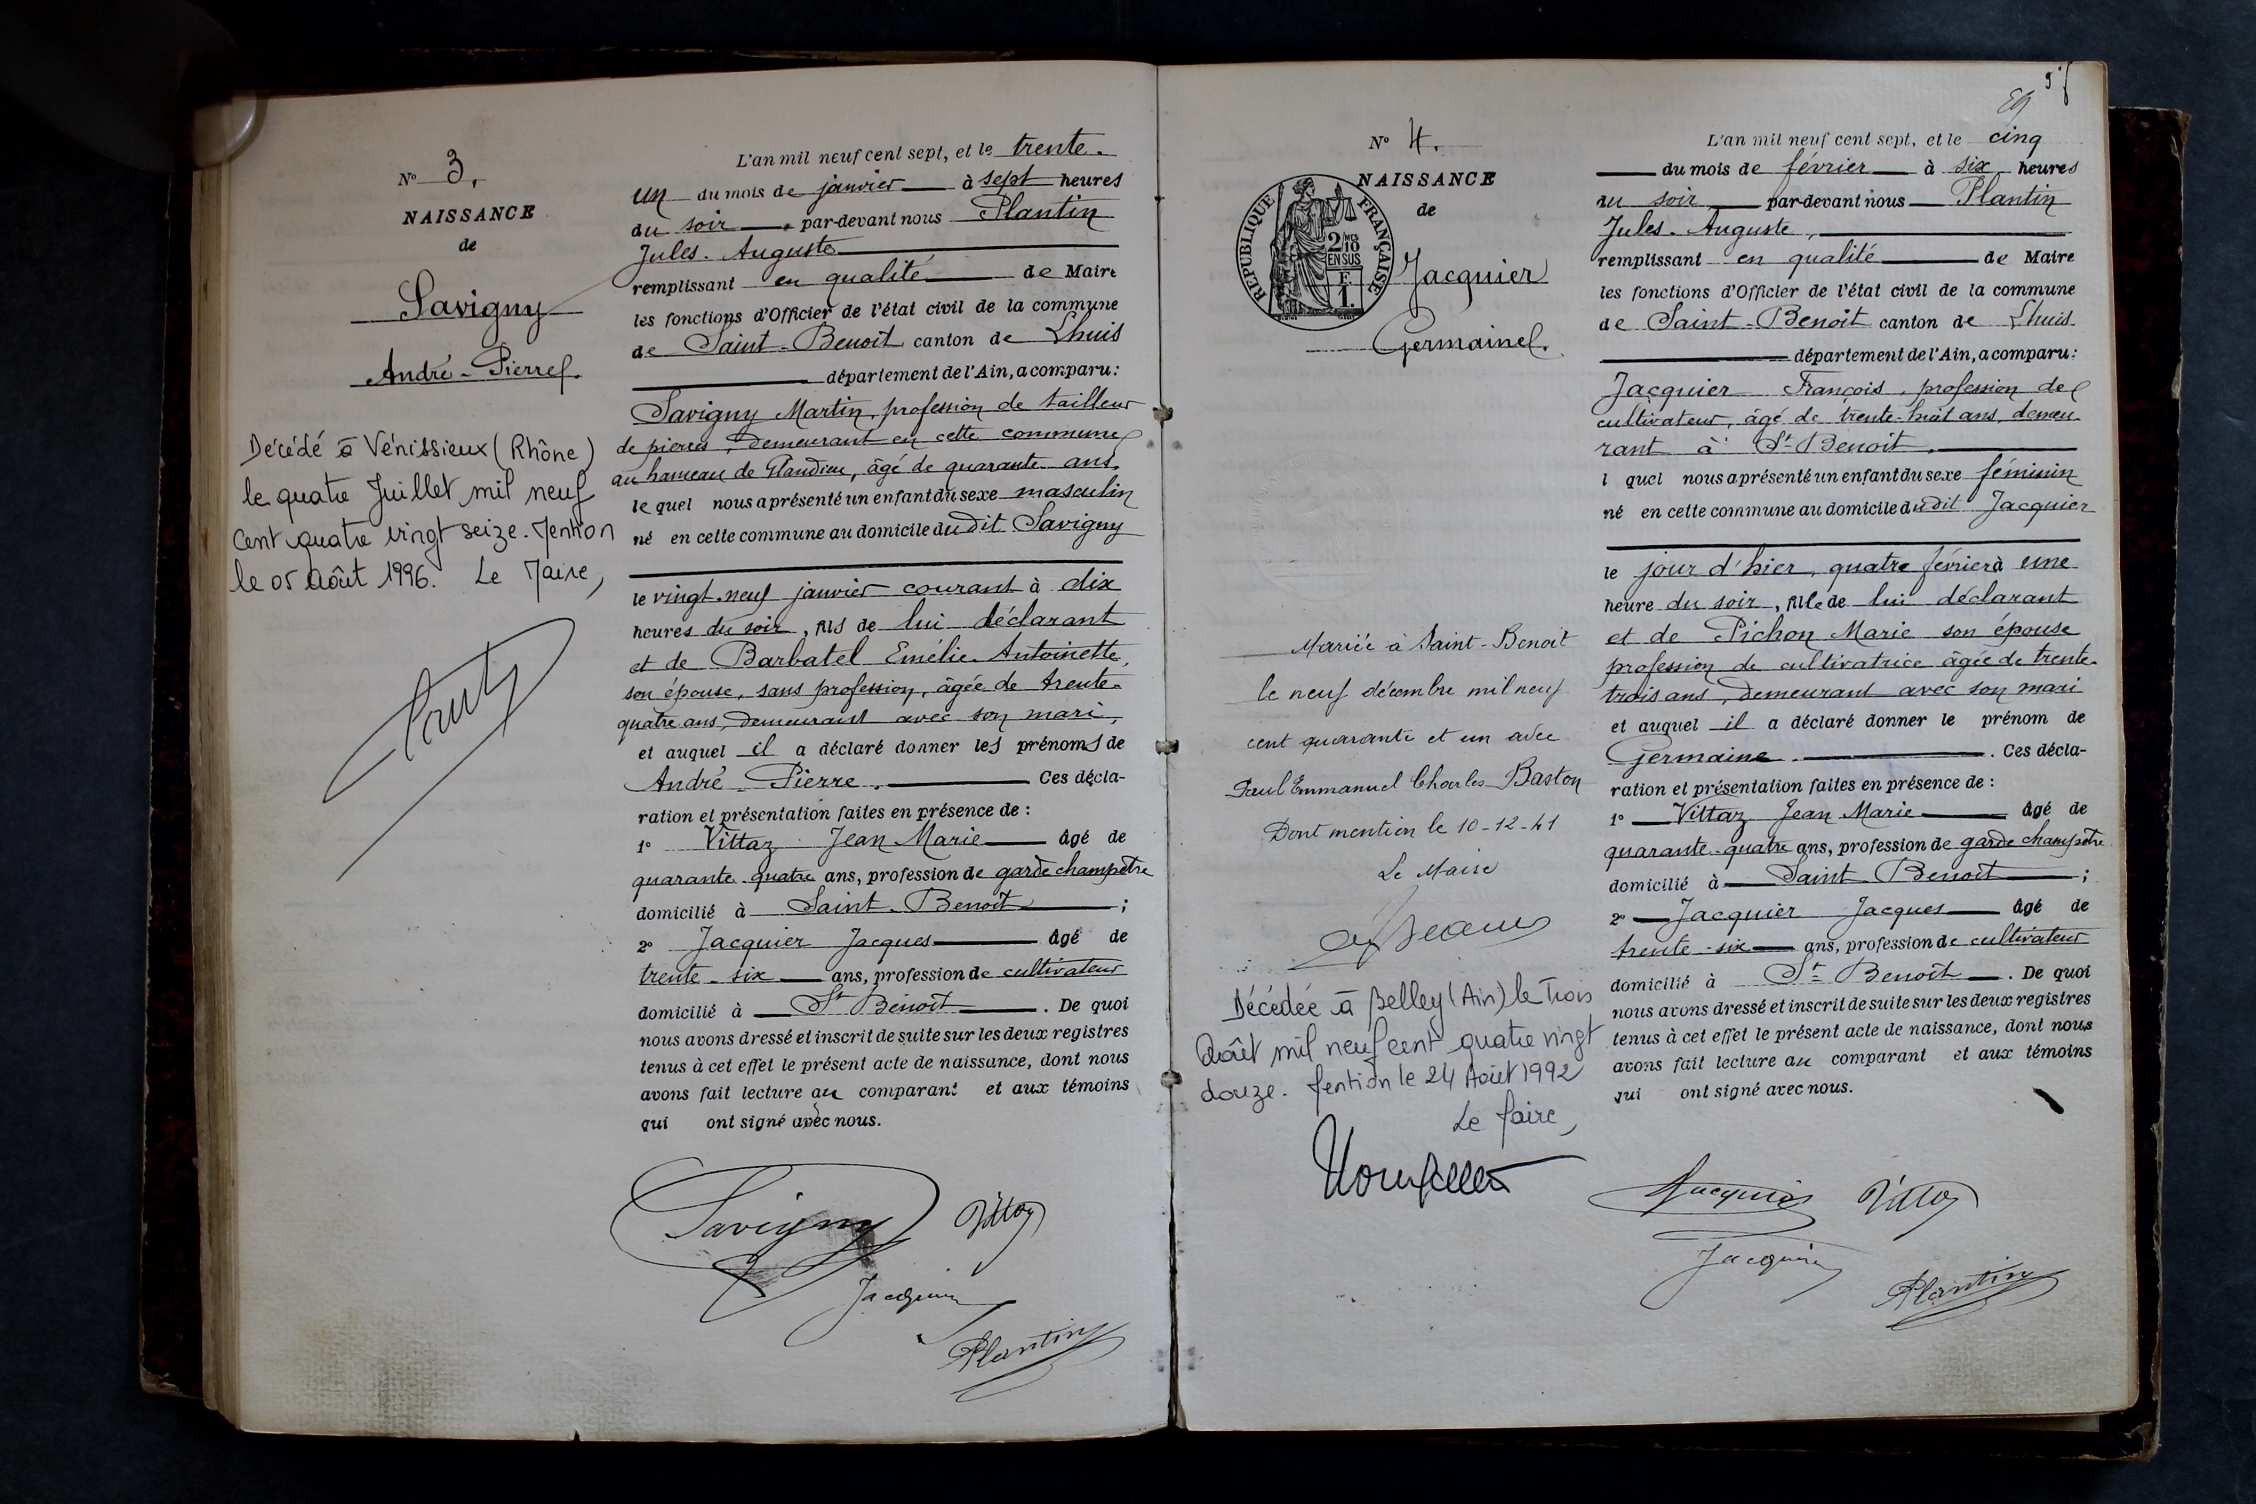 N° 3.
NAISSANCE
de
Savigny
André-Pierre.
Décédé à Vénissieux (Rhône)
le quatre Juillet mil neuf
cent quatre vingt seize. Mention
le 05 Août 1996. Le Maire,
L'an mil neuf cent sept, et le trente-
un du mois de janvier à sept heures
du soir, par-devant nous Plantin
Jules-Auguste
remplissant en qualité de Maire
les fonctions d'Officier de l'état civil de la commune
de Saint-Benoit canton de Lhuis
département de l'Ain, a comparu:
Savigny Martin, profession de tailleur
de pierres, demeurant en cette commune
au hameau de Glandieu, âgé de quarante ans.
lequel nous a présenté un enfant du sexe masculin
né en cette commune au domicile dudit Savigny
le vingt-neuf janvier courant à dix
heures du soir, fils de lui déclarant
et de Barbatel Emélie-Antoinette,
son épouse, sans profession, âgée de trente-
quatre ans, demeurant avec son mari,
et auquel il a déclaré donner les prénoms de
André-Pierre. Ces décla-
ration et présentation faites en présence de :
1° Vittaz Jean Marie âgé de
quarante-quatre ans, profession de garde champêtre
domicilié à Saint-Benoît ;
2° Jacquier Jacques âgé de
trente-six ans, profession de cultivateur
domicilié à St Benoît. De quoi
nous avons dressé et inscrit de suite sur les deux registres
tenus à cet effet le présent acte de naissance, dont nous
avons fait lecture au comparant et aux témoins
qui ont signé avec nous.
Savigny Vittoz
Jacquier
Plantin
N° 4.
NAISSANCE
de
RÉPUBLIQUE FRANÇAISE
2/10
EN SUS
F.
1.
Jacquier
Germaine.
Mariée à Saint-Benoit
le neuf décembre mil neuf
cent quarante et un avec
Paul Emmanuel Charles Baston
Dont mention le 10-12-41
Le Maire
Décédée à Belley (Ain) le Trois
Août mil neuf cent quatre vingt
douze. Mention le 24 Août 1992
Le Maire,
L'an mil neuf cent sept, et le cinq
du mois de février à six heures
du soir par-devant nous Plantin
Jules-Auguste,
remplissant en qualité de Maire
les fonctions d'Officier de l'état civil de la commune
de Saint-Benoît canton de Lhuis
département de l'Ain, a comparu:
Jacquier François, profession de
cultivateur, âgé de trente-huit ans, demeu-
rant à St-Benoit.
l quel nous a présenté un enfant du sexe féminin
né en cette commune au domicile dudit Jacquier
le jour d'hier, quatre février à une
heure du soir, fille de lui déclarant
et de Pichon Marie son épouse
profession de cultivatrice âgée de trente-
trois ans, demeurant avec son mari
et auquel il a déclaré donner le prénom de
Germaine. Ces décla-
ration et présentation faites en présence de :
1° Vittaz Jean Marie âgé de
quarante-quatre ans, profession de garde champêtre
domicilié à Saint Benoît ;
2° Jacquier Jacques âgé de
trente-six ans, profession de cultivateur
domicilié à St Benoît. De quoi
nous avons dressé et inscrit de suite sur les deux registres
tenus à cet effet le présent acte de naissance, dont nous
avons fait lecture au comparant et aux témoins
qui ont signé avec nous.
Jacquier Vittoz
Jacquier
Plantin